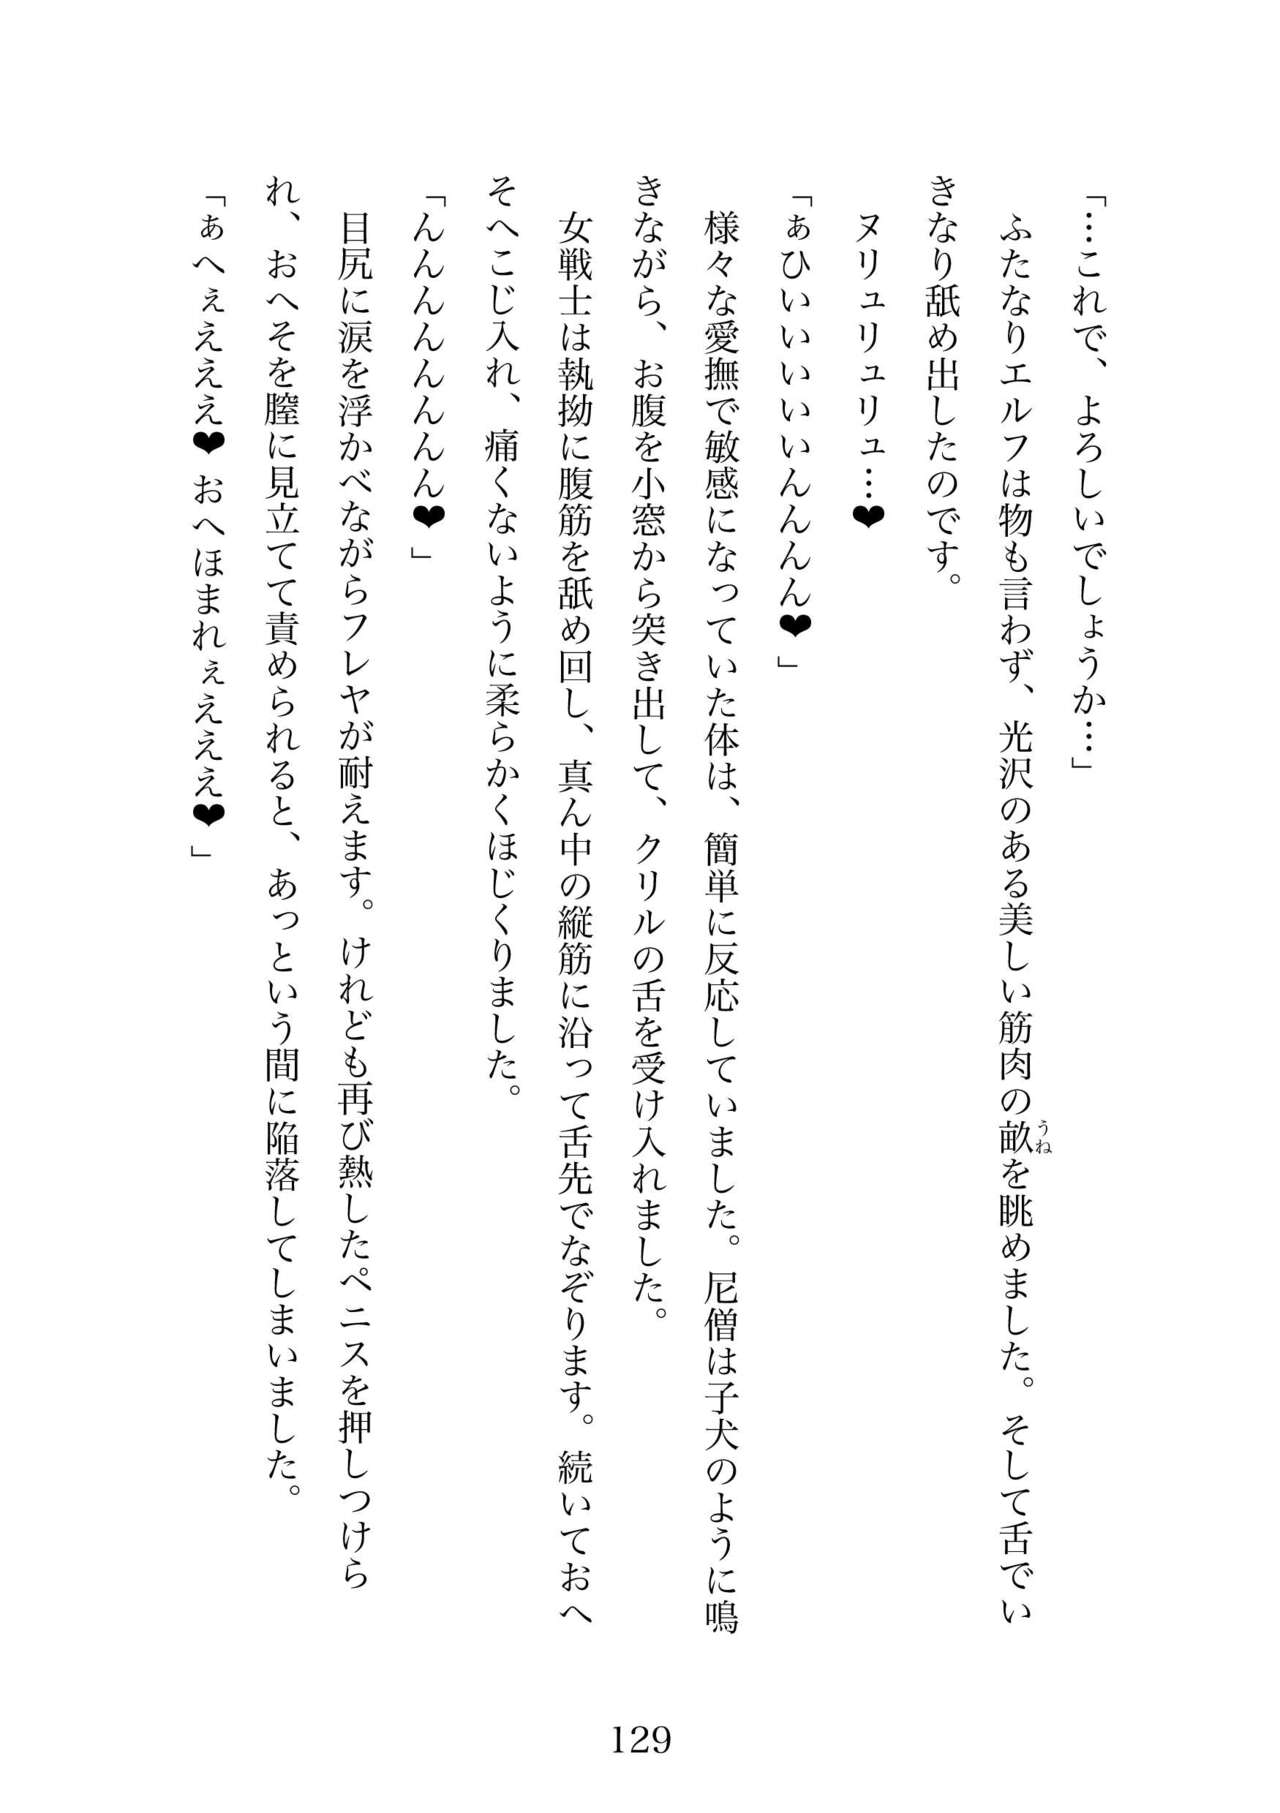 「…これで、よろしいでしょうか…」
ふたなりエルフは物も言わず、光沢のある美しい筋肉の畝うねを眺めました。そして舌でい
きなり舐め出したのです。
ヌリュリュリュ…❤
「ぁひいいいいいんんんん❤」
様々な愛撫で敏感になっていた体は、簡単に反応していました。尼僧は子犬のように鳴
きながら、お腹を小窓から突き出して、クリルの舌を受け入れました。
女戦士は執拗に腹筋を舐め回し、真ん中の縦筋に沿って舌先でなぞります。続いておへ
そへこじ入れ、痛くないように柔らかくほじくりました。
「んんんんんんんん❤」
目尻に涙を浮かべながらフレヤが耐えます。けれども再び熱したペニスを押しつけら
れ、おへそを膣に見立てて責められると、あっという間に陥落してしまいました。
「ぁへぇえええ❤おへほまれぇえええ❤」
129